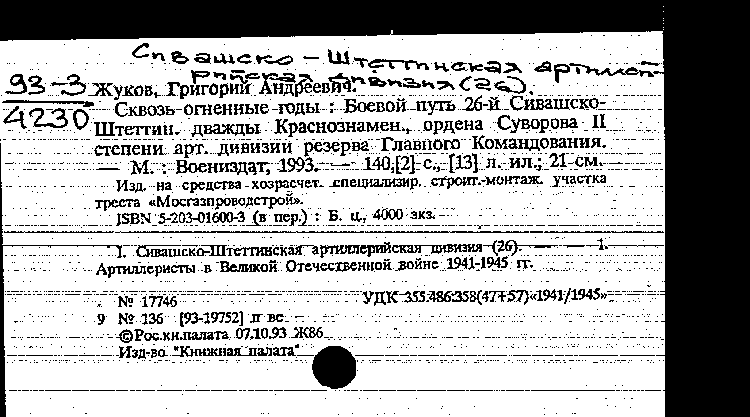 Сивашско-Штеттинская артилле-
рийская дивизия (26).
93-3
4230
Жуков, Григорий Андреевич.
Сквозь огненные годы : Боевой путь 26-й Сивашско-
Штеттин. дважды Краснознамен., ордена Суворова II
степени арт. дивизии резерва Главного Командования.
— М. : Воениздат, 1993. — 140,[2] с., [13] л. ил.; 21 см.
Изд. на средства хозрасчет. специализир. строит.-монтаж. участка
треста «Мосгазпроводстрой».
ISBN 5-203-01600-3 (в пер.) : Б. ц., 4000 экз.
1. Сивашско-Штеттинская артиллерийская дивизия (26). — 1.
Артиллеристы в Великой Отечественной войне 1941-1945 гг.
№ 17746 УДК 355.486:358(47+57)«1941/1945»
9 № 136 [93-19752] п вс
©Рос.кн.палата 07.10.93 Ж86
Изд-во "Книжная палата"